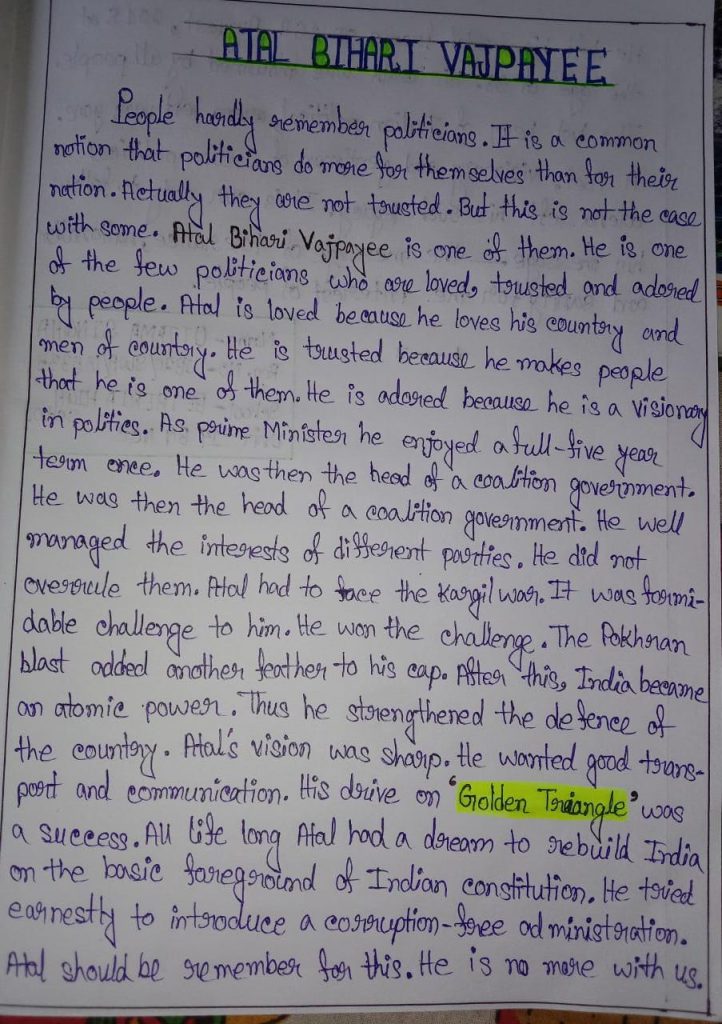 ATAL BIHARI VAJPAYEE
People hardly remember politicians. It is a common
notion that politicians do more for themselves than for their
nation. Actually they are not trusted. But this is not the case
with some. Atal Bihari Vajpayee is one of them. He is one
of the few politicians who are loved, trusted and adored
by people. Atal is loved because he loves his country and
men of country. He is trusted because he makes people
that he is one of them. He is adored because he is a visionary
in politics. As prime Minister he enjoyed a full-five year
term once. He was then the head of a coalition government.
He was then the head of a coalition government. He well
managed the interests of different parties. He did not
overrule them. Atal had to face the Kargil war. It was formi-
dable challenge to him. He won the challenge. The Pokhran
blast added another feather to his cap. After this, India became
an atomic power. Thus he strengthened the defence of
the country. Atal's vision was sharp. He wanted good trans-
port and communication. His drive on 'Golden Triangle' was
a success. All life long Atal had a dream to rebuild India
on the basic foreground of Indian constitution. He tried
earnestly to introduce a corruption-free administration.
Atal should be remember for this. He is no more with us.